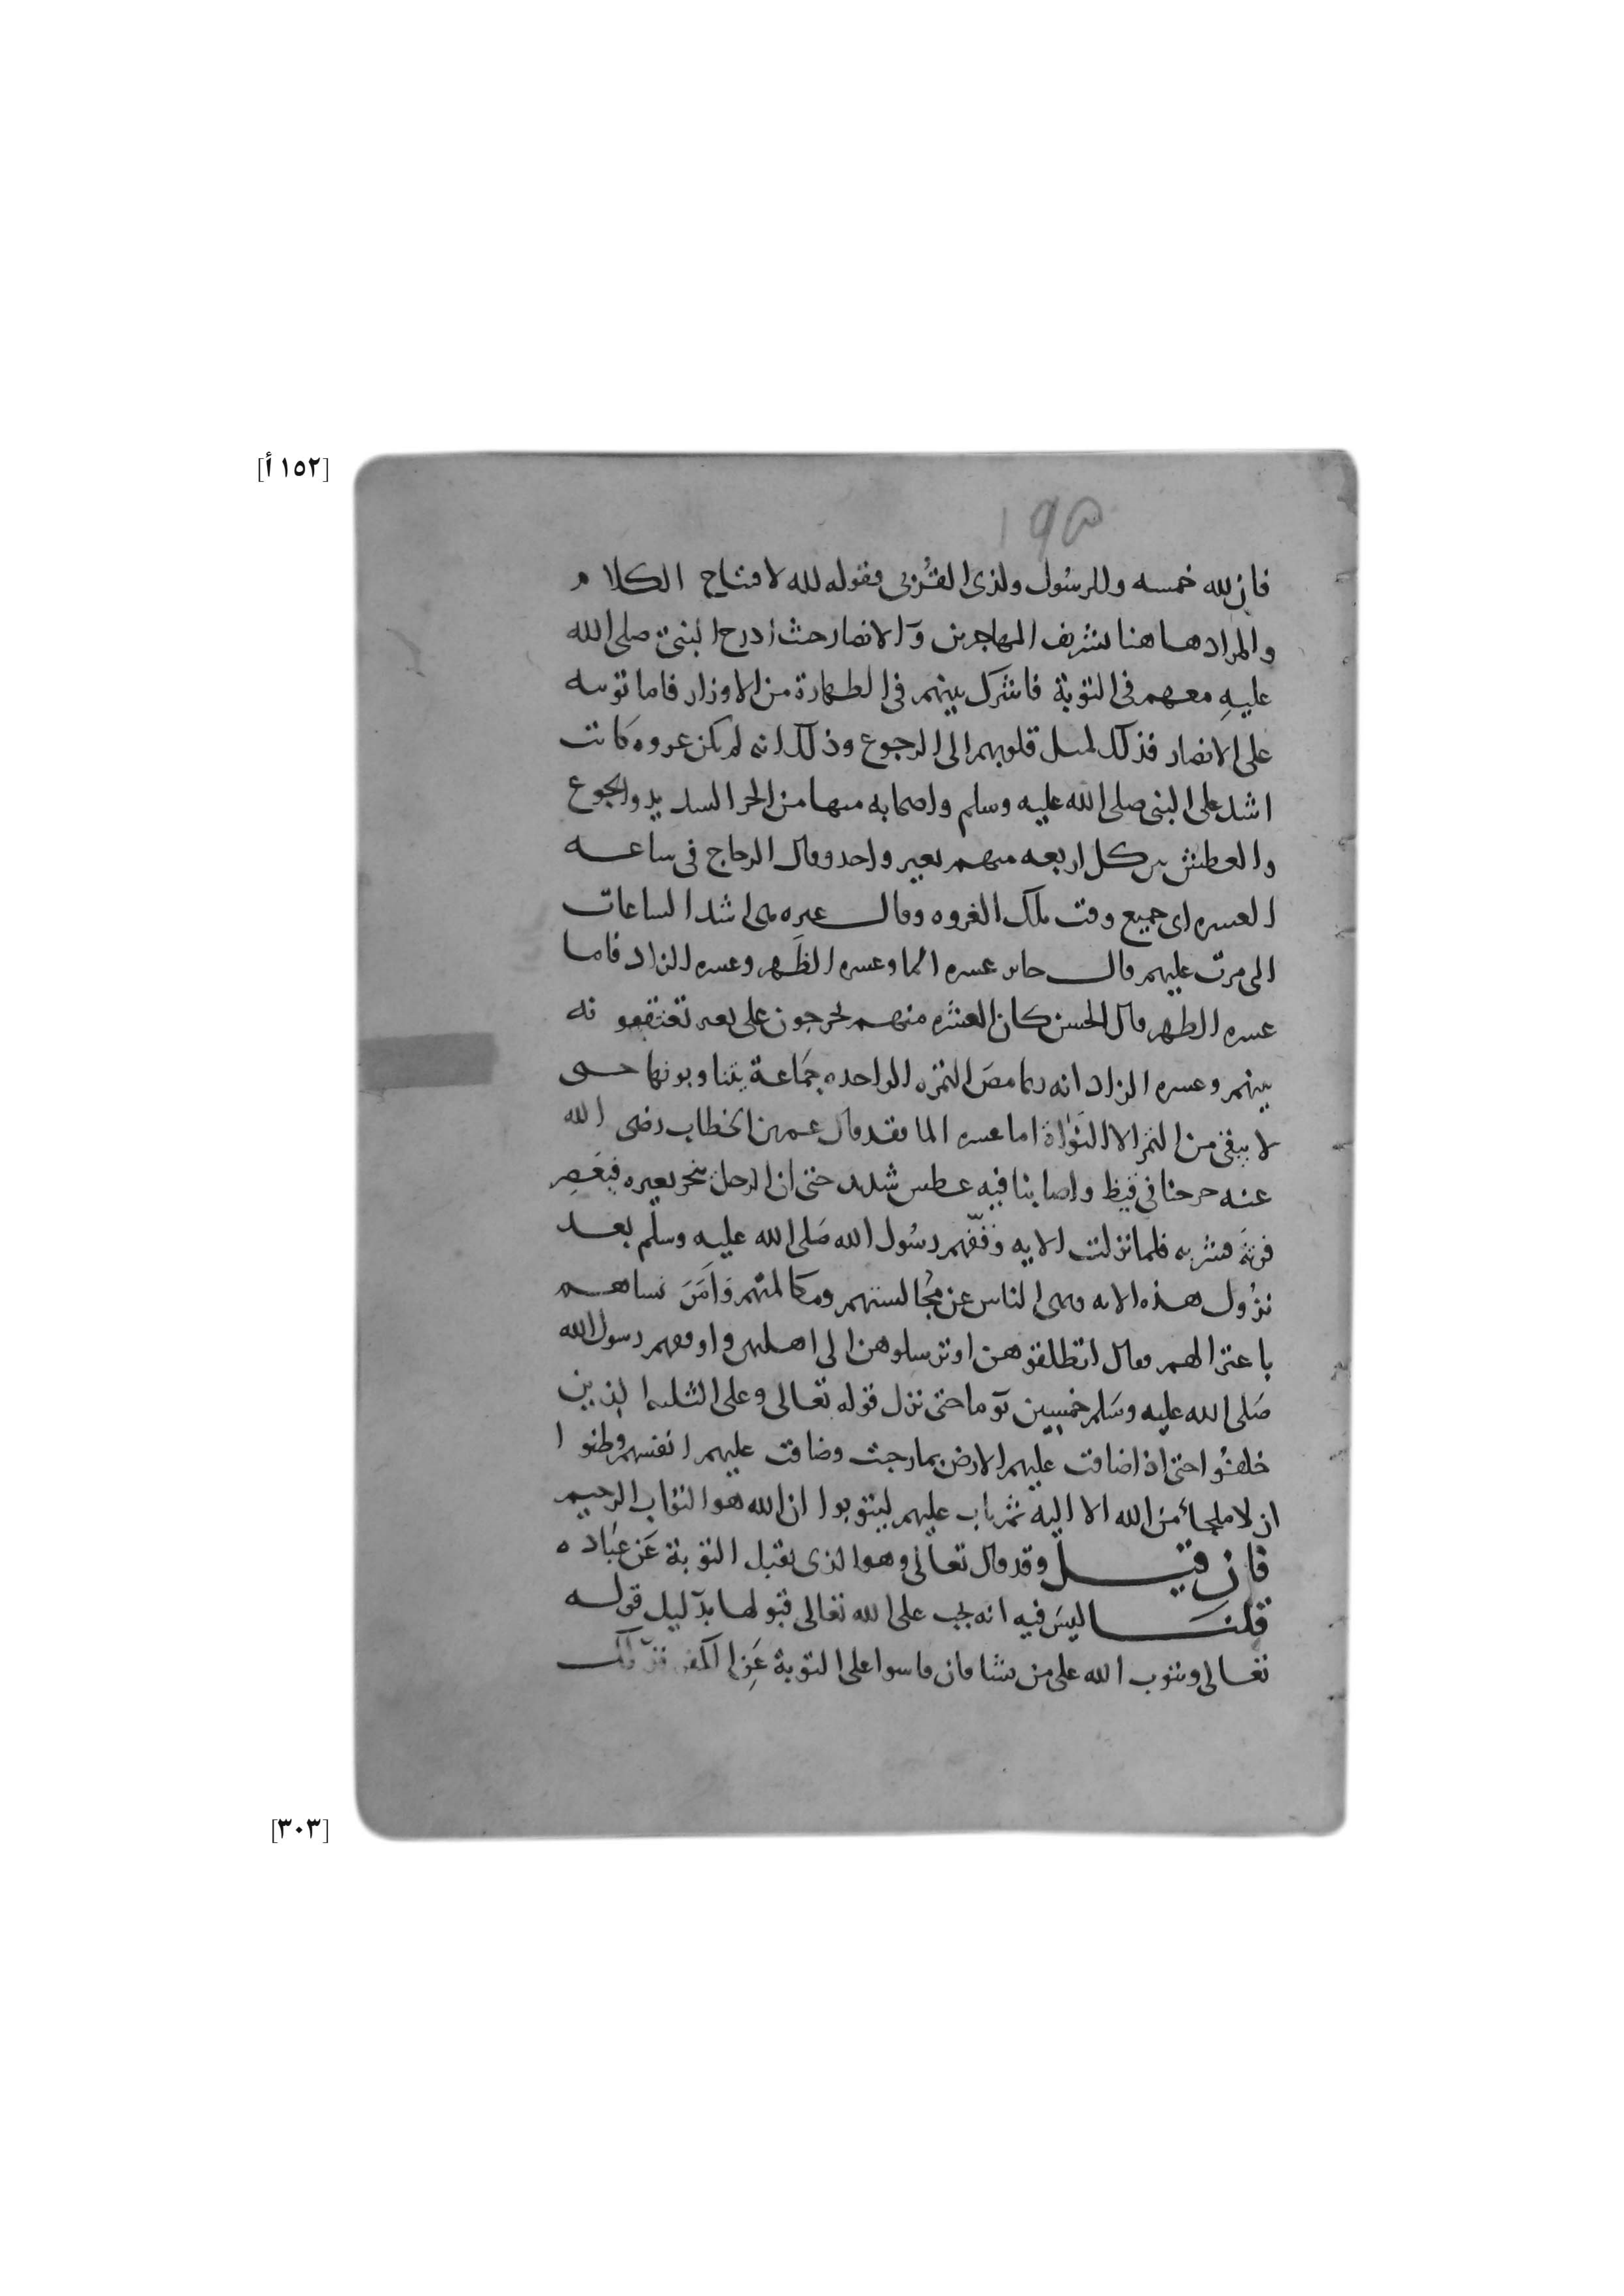 [١٥٢ أ]
١٩٥
فان لله خمسه وللرسول ولذى القربى فقوله لله لافتتاح الكلام
والمراد هاهنا تشريف المهاجرين والانصار حيث ادرج النبى صلى الله
عليه معهم فى التوبة فاشرك بينهم فى الطهارة من الاوزار فاما توبته
على الانصار فذلك لميل قلوبهم الى الرجوع وذلك انه لم تكن غزوه كانت
اشد على النبى صلى الله عليه وسلم واصحابه منها من الحر الشديد والجوع
والعطش بين كل اربعه منهم بعير واحد وقال الزجاج فى ساعه
العسره اى جميع وقت تلك الغزوه وقال غيره هى اشد الساعات
التى مرت عليهم قال جابر عسره الما وعسره الظهر وعسره الزاد فاما
عسره الظهر قال الحسن كان العشره منهم يخرجون على بعير تعتقبونه
بينهم وعسره الزاد انه ربما مص التمره الواحده جماعة يتناوبونها حتى
لا يبقى من التمر الا النواة اما عسره الما فقد قال عمر بن الخطاب رضى الله
عنه خرجنا فى قيظ واصابنا فيه عطش شديد حتى ان الرجل ينحر بعيره فيعصر
فرثه فيشربه فلما نزلت الايه وقفهم رسول الله صلى الله عليه وسلم بعد
نزول هذه الايه ونهى الناس عن مجالستهم ومكالمتهم وامر نساهم
باعتزالهم وقال لا تطلقوهن او ترسلوهن الى اهلهن واوقفهم رسول الله
صلى الله عليه وسلم خمسين يوما حتى نزل قوله تعالى وعلى الثلثه الذين
خلفوا حتى اذا ضاقت عليهم الارض بما رحبت وضاقت عليهم انفسهم وظنوا
ان لا ملجأ من الله الا اليه ثم تاب عليهم ليتوبوا ان الله هو التواب الرحيم
فان قيل وقد قال تعالى وهو الذى يقبل التوبة عن عباده
قلنا ليس فيه انه يجب على الله تعالى قبولها بدليل قوله
تعالى ويتوب الله على من يشا فان قاسوا على التوبة عن الكفر
[٣٠٣]